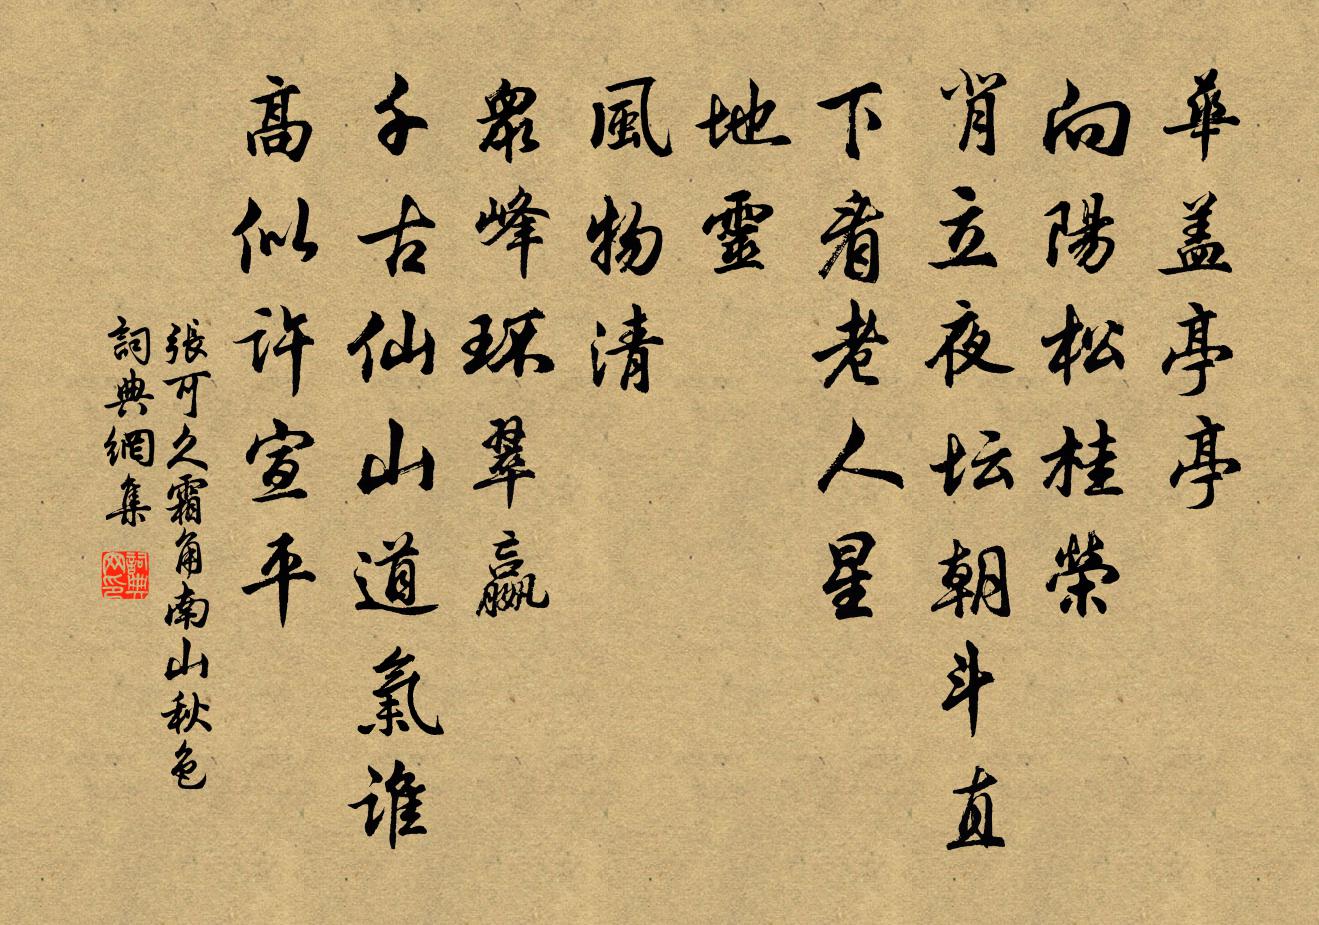 華盖亭亭
向陽松桂榮
背立夜坛朝斗直
下看老人星
地靈
風物清
眾峰环翠嬴
千古仙山道氣誰
高似許宣平
張可久霜角南山秋色
詞典網集
詞典网印